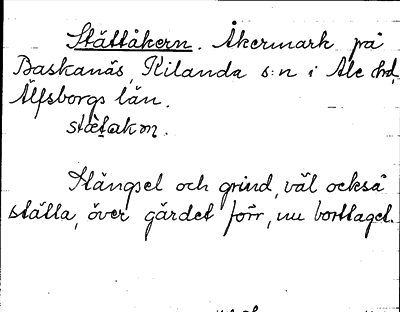 Stättåkern. Åkermark på
Baskanäs, Kilanda s:n i Ale hd,
Älfsborgs län.
Stängsel och grind, väl också
stätta, över gärdet förr, nu borttaget.